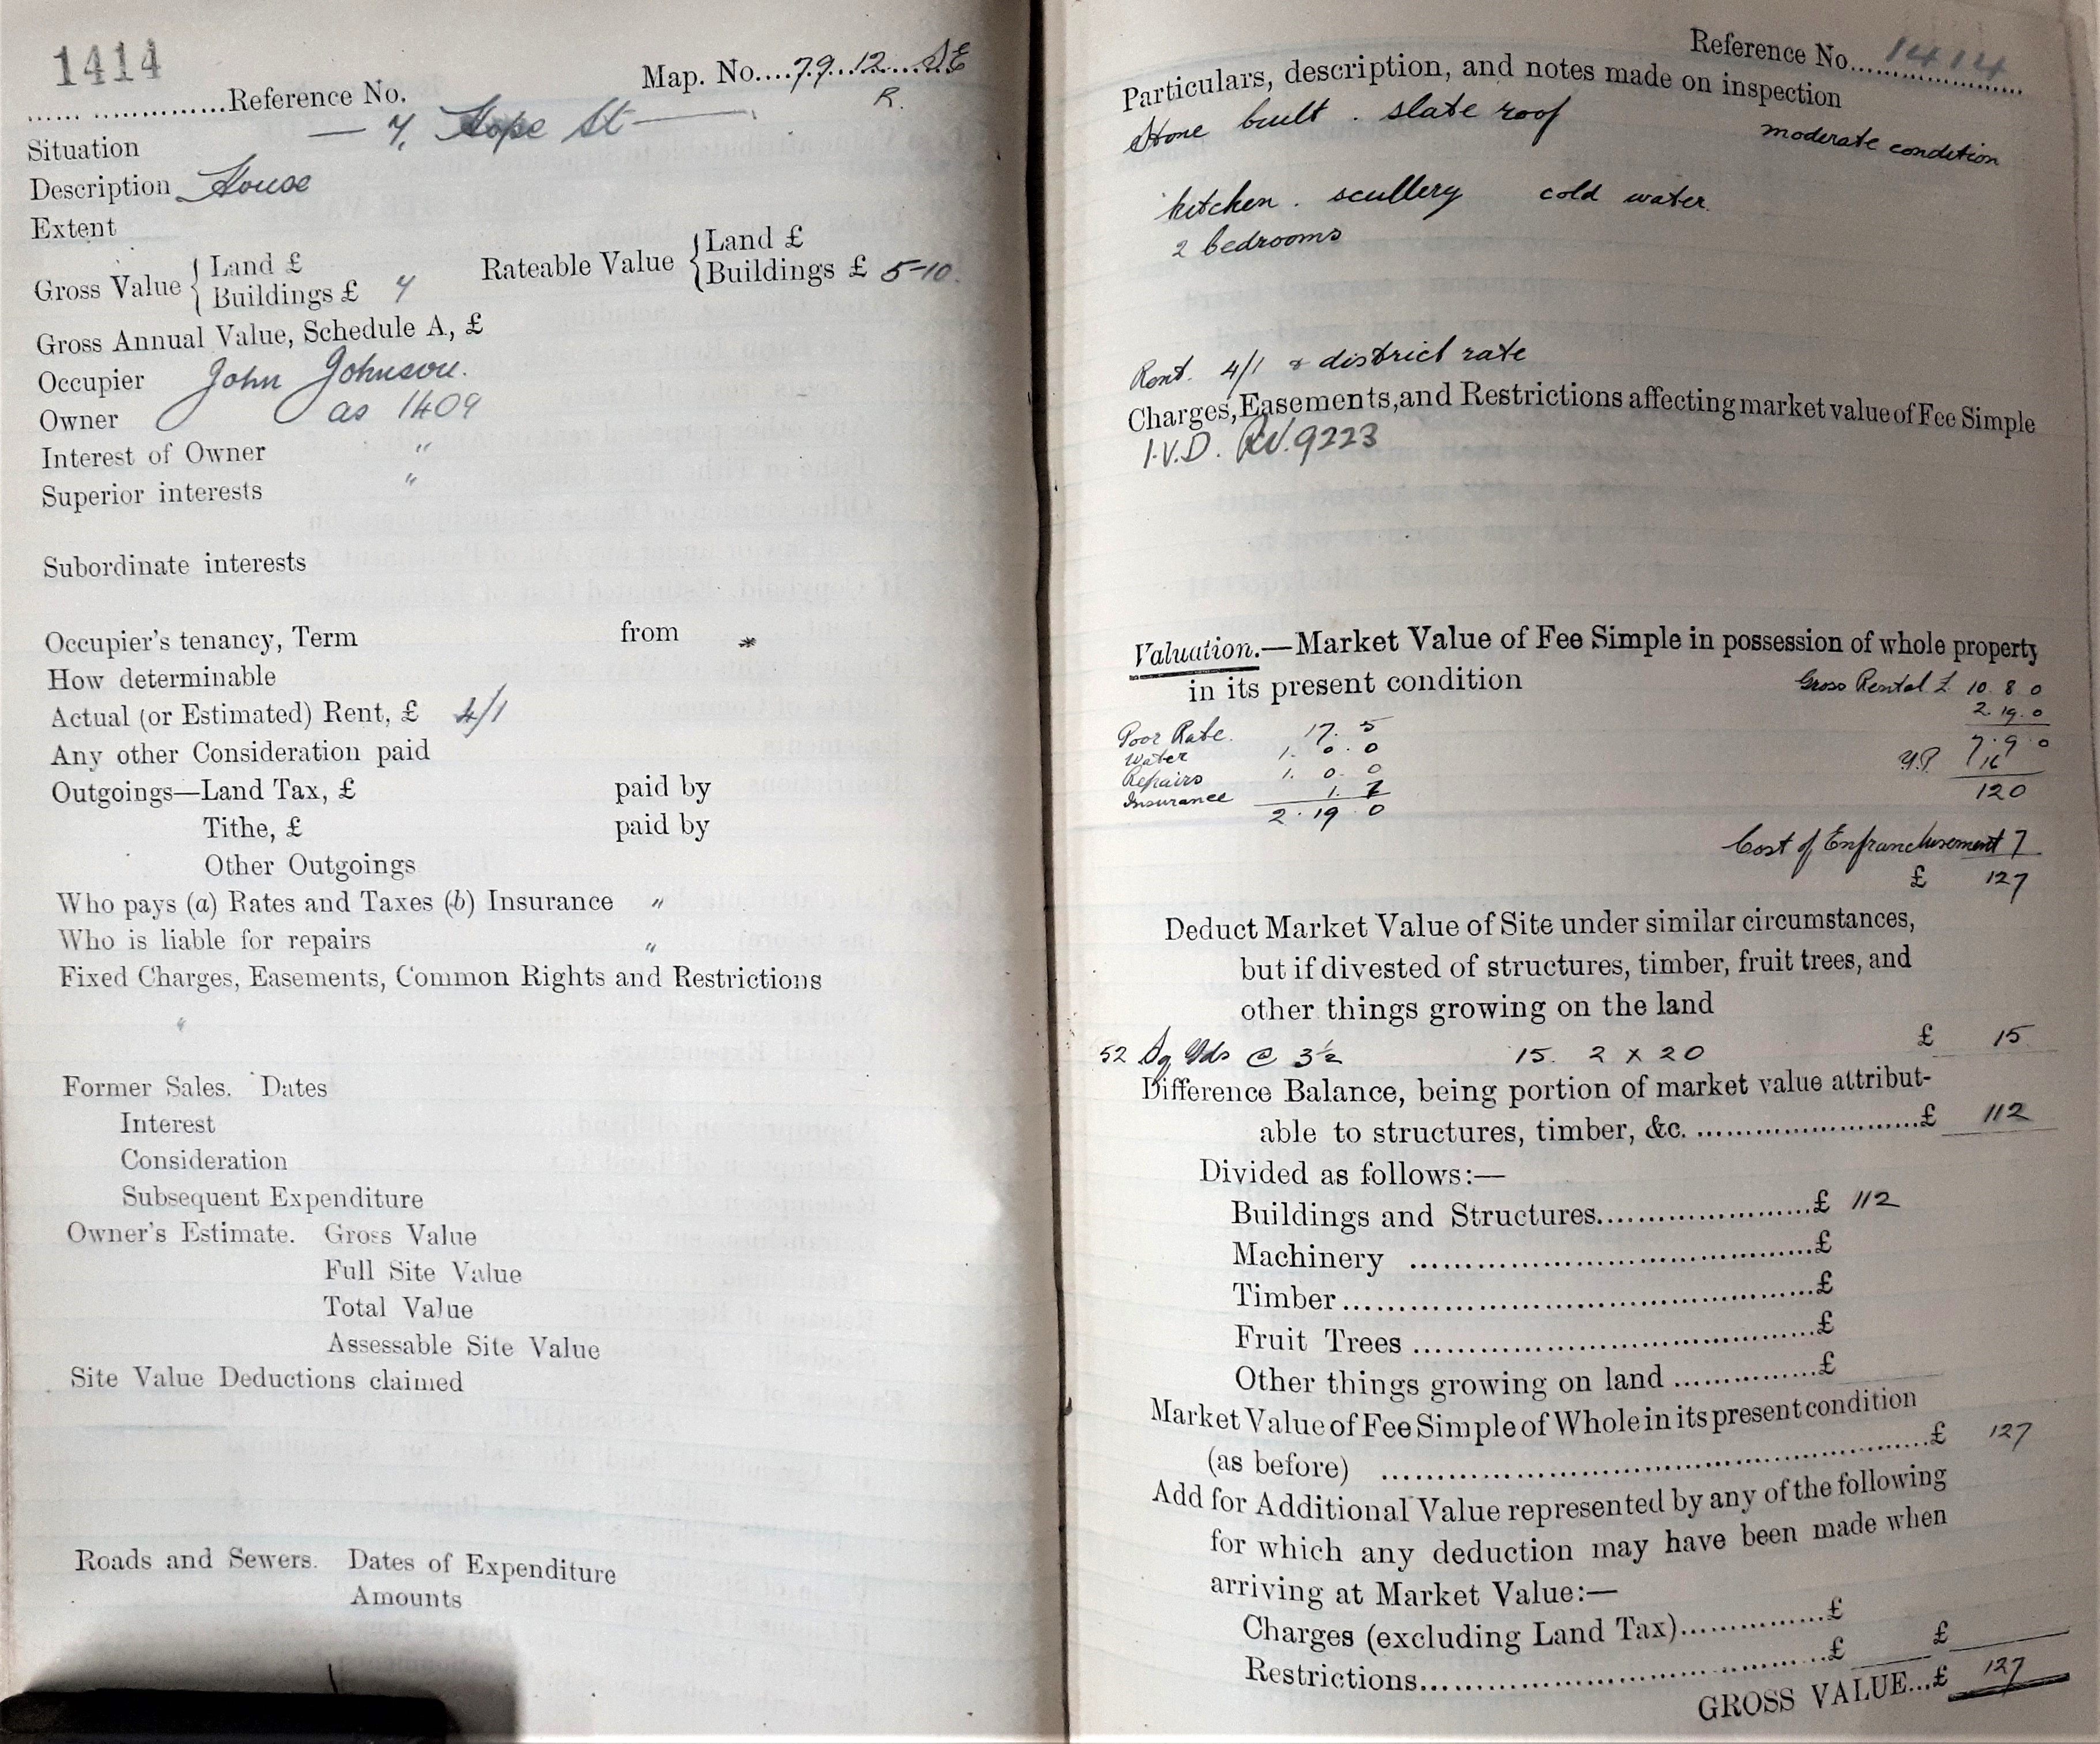 1414
Map. No....79..12...SE
R.
..................Reference No.
Situation — 7, Hope St —
Description House
Extent
Gross Value { Land £
Buildings £ 7
Rateable Value { Land £
Buildings £ 5-10.
Gross Annual Value, Schedule A, £
Occupier John Johnson.
Owner as 1409
Interest of Owner "
Superior interests "
Subordinate interests
Occupier's tenancy, Term from
How determinable
Actual (or Estimated) Rent, £ 4/1
Any other Consideration paid
Outgoings—Land Tax, £ paid by
Tithe, £ paid by
Other Outgoings
Who pays (a) Rates and Taxes (b) Insurance "
Who is liable for repairs "
Fixed Charges, Easements, Common Rights and Restrictions
"
Former Sales. Dates
Interest
Consideration
Subsequent Expenditure
Owner's Estimate. Gross Value
Full Site Value
Total Value
Assessable Site Value
Site Value Deductions claimed
Roads and Sewers. Dates of Expenditure
Amounts
Reference No. 1414
Particulars, description, and notes made on inspection
Stone built . slate roof
moderate condition
kitchen . scullery cold water.
2 bedrooms
Rent. 4/1 & district rate
Charges, Easements, and Restrictions affecting market value of Fee Simple
I.V.D. RV.9223
Valuation.—Market Value of Fee Simple in possession of whole property
in its present condition
Gross Rental £ 10. 8. 0
2. 19. 0
7. 9 0
Y.P. 16
120
Poor Rate. 17. 5
Water 1. 0. 0
Repairs 1. 0. 0
Insurance 1. 7
2. 19. 0
Cost of Enfranchisement 7
£ 127
Deduct Market Value of Site under similar circumstances,
but if divested of structures, timber, fruit trees, and
other things growing on the land
52 Sq Yds @ 3½ 15. 2 x 20 £ 15
Difference Balance, being portion of market value attribut-
able to structures, timber, &c. ..........................£ 112
Divided as follows:—
Buildings and Structures.......................£ 112
Machinery ............................................£
Timber...................................................£
Fruit Trees ............................................£
Other things growing on land ................£
Market Value of Fee Simple of Whole in its present condition
(as before) ............................................................£ 127
Add for Additional Value represented by any of the following
for which any deduction may have been made when
arriving at Market Value:—
Charges (excluding Land Tax)................£
Restrictions.............................................£ £
GROSS VALUE...£ 127